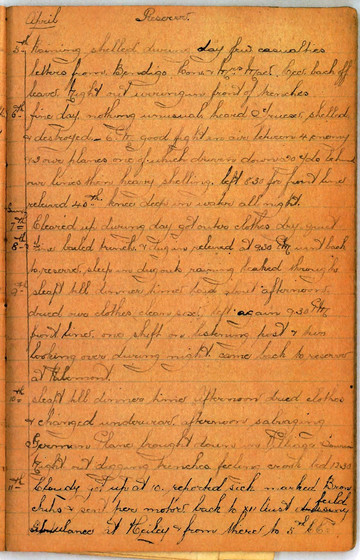 April Reserves
5th Morning shelled during day few casualties
letters from Bendigo Cons & Mrs back off
leave Night out wiring in front of trenches
6th fine day nothing unusual heard shelled
& destroyed - 6 good fight in air between 4 enemy
& 3 our planes one of which driven down 50 yds behind
our lines then heavy shelling left 8.30 for front line
relieved 48th knee deep in water all night.
7th Cleared up during day got outer clothes dry quiet
8th time baled trench relieved at 9.30 PM went back
to reserve, sleep in dug outs raining leaked through
9th slept till dinner time laid about afternoon
dried our clothes left again 9.30 PM
front line. one shift on listening post & two
looking over during night. came back to reserve
at
10th slept till dinner time afternoon dried clothes
& changed underwear. afternoon salvaging
German Plane brought down in
Night out digging trenches feeling crook bed 12.30
11th Cloudy got up at 10. reported sick marked Bron
chitis & sent per motor back to XII Aust field
ambulance at Heilly & from there to 5th